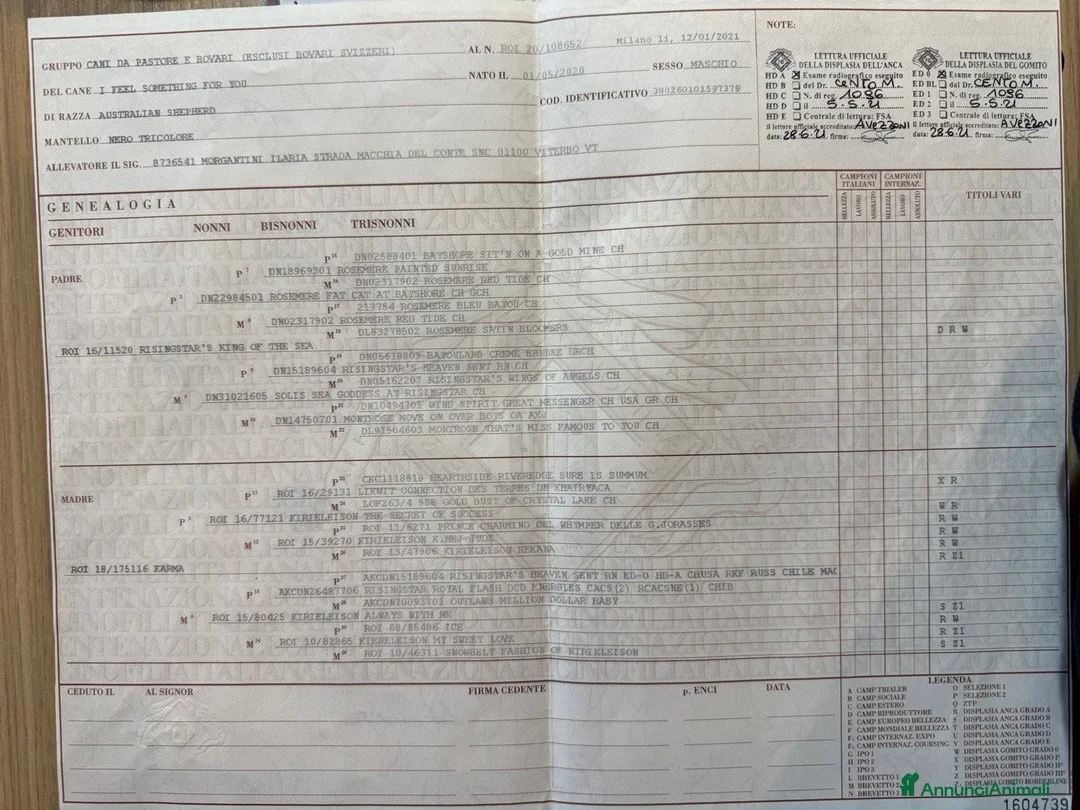 GRUPPO CANI DA PASTORE E BOVARI (ESCLUSI BOVARI SVIZZERI)
AL N. ROI 20/108652
Milano lì, 12/01/2021
DEL CANE I FEEL SOMETHING FOR YOU
NATO IL 01/05/2020
SESSO MASCHIO
DI RAZZA AUSTRALIAN SHEPHERD
COD. IDENTIFICATIVO 380260101597379
MANTELLO NERO TRICOLORE
ALLEVATORE IL SIG. 8736541 MORGANTINI ILARIA STRADA MACCHIA DEL CONTE SNC 01100 VITERBO VT
NOTE:
LETTURA UFFICIALE
DELLA DISPLASIA DELL'ANCA
HD A X Esame radiografico eseguito
HD B del Dr. CENTO M.
HD C N. di reg. 1096
HD D il 5.5.21
HD E Centrale di lettura: FSA
Il lettore ufficiale accreditato: AVEZZANI
data: 28.6.21 firma:
LETTURA UFFICIALE
DELLA DISPLASIA DEL GOMITO
ED 0 X Esame radiografico eseguito
ED BL dal Dr. CENTO M.
ED 1 N. di reg. 1096
ED 2 il 5.5.21
ED 3 Centrale di lettura: FSA
Il lettore ufficiale accreditato: AVEZZANI
data: 28.6.21 firma:
GENEALOGIA
GENITORI NONNI BISNONNI TRISNONNI
CAMPIONI ITALIANI
CAMPIONI INTERNAZ.
BELLEZZA LAVORO ASSOLUTO BELLEZZA LAVORO ASSOLUTO
TITOLI VARI
PADRE
P 15 DN02588401 BAYSHORE SIT'N ON A GOLD MINE CH
P 7 DN18969301 ROSEMERE PAINTED SUNRISE
M 16 DN02317902 ROSEMERE RED TIDE CH
P 3 DN22984501 ROSEMERE FAT CAT AT BAYSHORE CH GCH
P 17 213754 ROSEMERE BLEU BAYOU CH
M 8 DN02317902 ROSEMERE RED TIDE CH
M 18 DL83278502 ROSEMERE SATIN BLOOMERS
ROI 16/11520 RISINGSTAR'S KING OF THE SEA D R W
P 19 DN05618803 BAYOULAND CREME BRULEE GRCH
P 9 DN15189604 RISINGSTAR'S HEAVEN SENT RN CH
M 20 DN05162207 RISINGSTAR'S WINGS OF ANGELS CH
M 4 DN31021605 SOLIS SEA GODDESS AT RISINGSTAR CH
P 21 DN10494701 WIND SPIRIT GREAT MESSENGER CH USA GR CH
M 10 DN14750701 MONTROSE MOVE ON OVER BOYS OA AXJ
M 22 DL91504603 MONTROSE THAT'S MISS FAMOUS TO YOU CH
MADRE
P 23 CKC1118818 HEARTHSIDE RIVEREDGE SURE IS SUMMUM
P 11 ROI 16/29131 LIKWIT CONNECTION DES TERRES DE KHAIRYACA X R
M 24 LOF263/4 988 GOLD DUST OF CRYSTAL LAKE CH
P 5 ROI 16/77121 KIRIELEISON THE SECRET OF SUCCESS W R
P 25 ROI 11/6271 PRINCE CHARMING DEL WHYMPER DELLE G.JORASSES R W
M 12 ROI 15/39270 KIRIELEISON K.HEJ JUDE R W
M 26 ROI 13/47986 KIRIELEISON REXANA R W
ROI 18/175116 KARMA R Z1
P 27 AKCDN15189604 RISINGSTAR'S HEAVEN SENT RN ED-0 HD-A CHUSA RKF RUSS CHILE MAC
P 13 AKCDN26487706 RISINGSTAR ROYAL FLASH DCD ENERBLES CACS(2) RCACSNE(1) CHIB
M 28 AKCDN10093701 OUTLAWS MILLION DOLLAR BABY
M 6 ROI 15/80425 KIRIELEISON ALWAYS WITH ME S Z1
P 29 ROI 08/86486 ICE R W
M 14 ROI 10/82865 KIERELEISON MY SWEET LOVE R Z1
M 30 ROI 10/46311 SNOWBELT FASHION OF KIRIELEISON S Z1
CEDUTO IL AL SIGNOR FIRMA CEDENTE p. ENCI DATA
LEGENDA
A CAMP TRIALER
B CAMP SOCIALE
C CAMP ESTERO
D CAMP RIPRODUTTORE
E CAMP EUROPEO BELLEZZA
F CAMP MONDIALE BELLEZZA
F1 CAMP INTERNAZ. EXPO
F2 CAMP INTERNAZ. COURSING
G IPO 1
H IPO 2
I IPO 3
L BREVETTO 1
M BREVETTO 2
N BREVETTO 3
O SELEZIONE 1
P SELEZIONE 2
Q ZTP
R DISPLASIA ANCA GRADO A
S DISPLASIA ANCA GRADO B
T DISPLASIA ANCA GRADO C
U DISPLASIA ANCA GRADO D
V DISPLASIA ANCA GRADO E
W DISPLASIA GOMITO GRADO 0
X DISPLASIA GOMITO GRADO I°
Y DISPLASIA GOMITO GRADO II°
Z DISPLASIA GOMITO GRADO III°
Z1 DISPLASIA GOMITO BORDERLINE
AnnunciAnimali
1604739